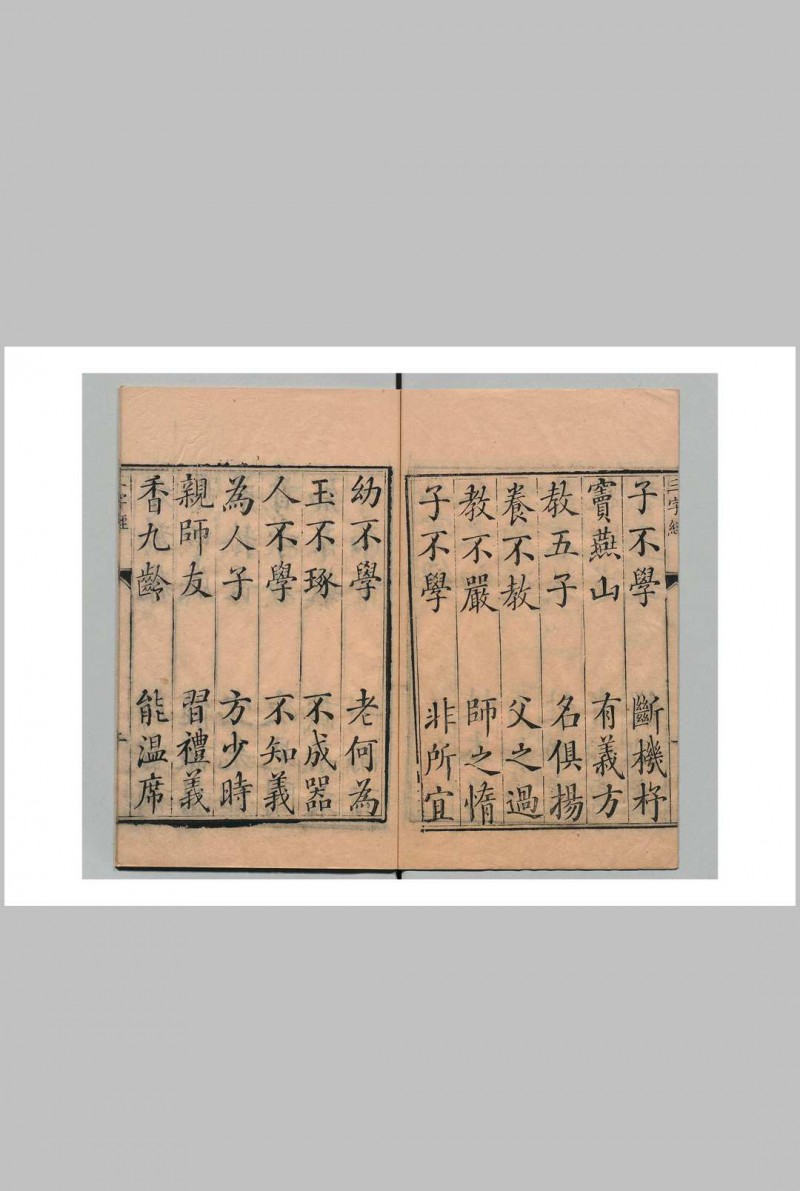 三字經
子不學 斷機杼
竇燕山 有義方
教五子 名俱揚
養不教 父之過
教不嚴 師之惰
子不學 非所宜
幼不學 老何為
玉不琢 不成器
人不學 不知義
為人子 方少時
親師友 習禮義
香九齡 能温席
字經